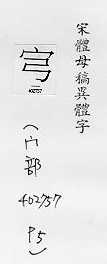 宋體母稿異體字
402757
(宀部
402757
P5)